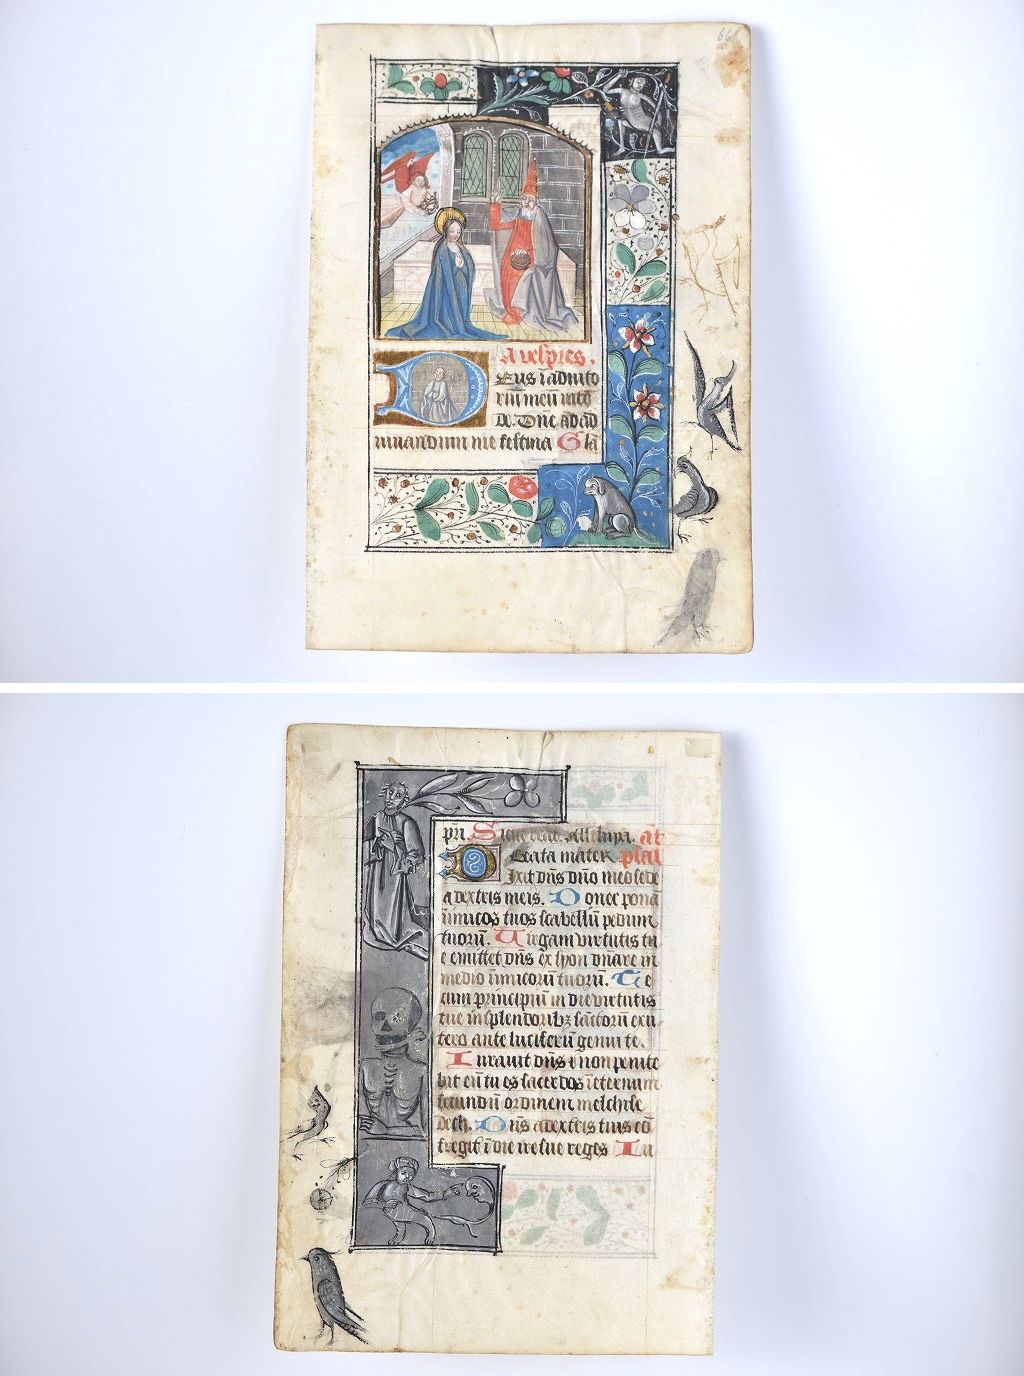 66
A vespres.
Eus i adiuto
riu meu inte
de. Dne ad ad
iuuandum me festina Gla
pri. Sicut erat. Alleluya. at
Beata mater psal
Ixit dns dno meo sede
a dextris meis. Donec pona
inimicos tuos scabellu pedum
tuoru. Virgam virtutis tu
e emittet dns ex syon dnare in
medio inimicoru tuoru. Te
cum principiu in die virtutis
tue in splendoribz sanctoru exu
tero ante luciferu genui te.
Iurauit dns & non penite
bit eu tu es sacerdos i eternum
secundu ordinem melchise
dech. Dns a dextris tuis co
fregit i die ire sue reges Iu